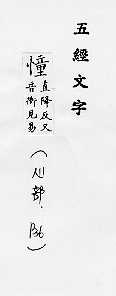 五經文字
憧
直降反又
音衝見易
（心部．P36）